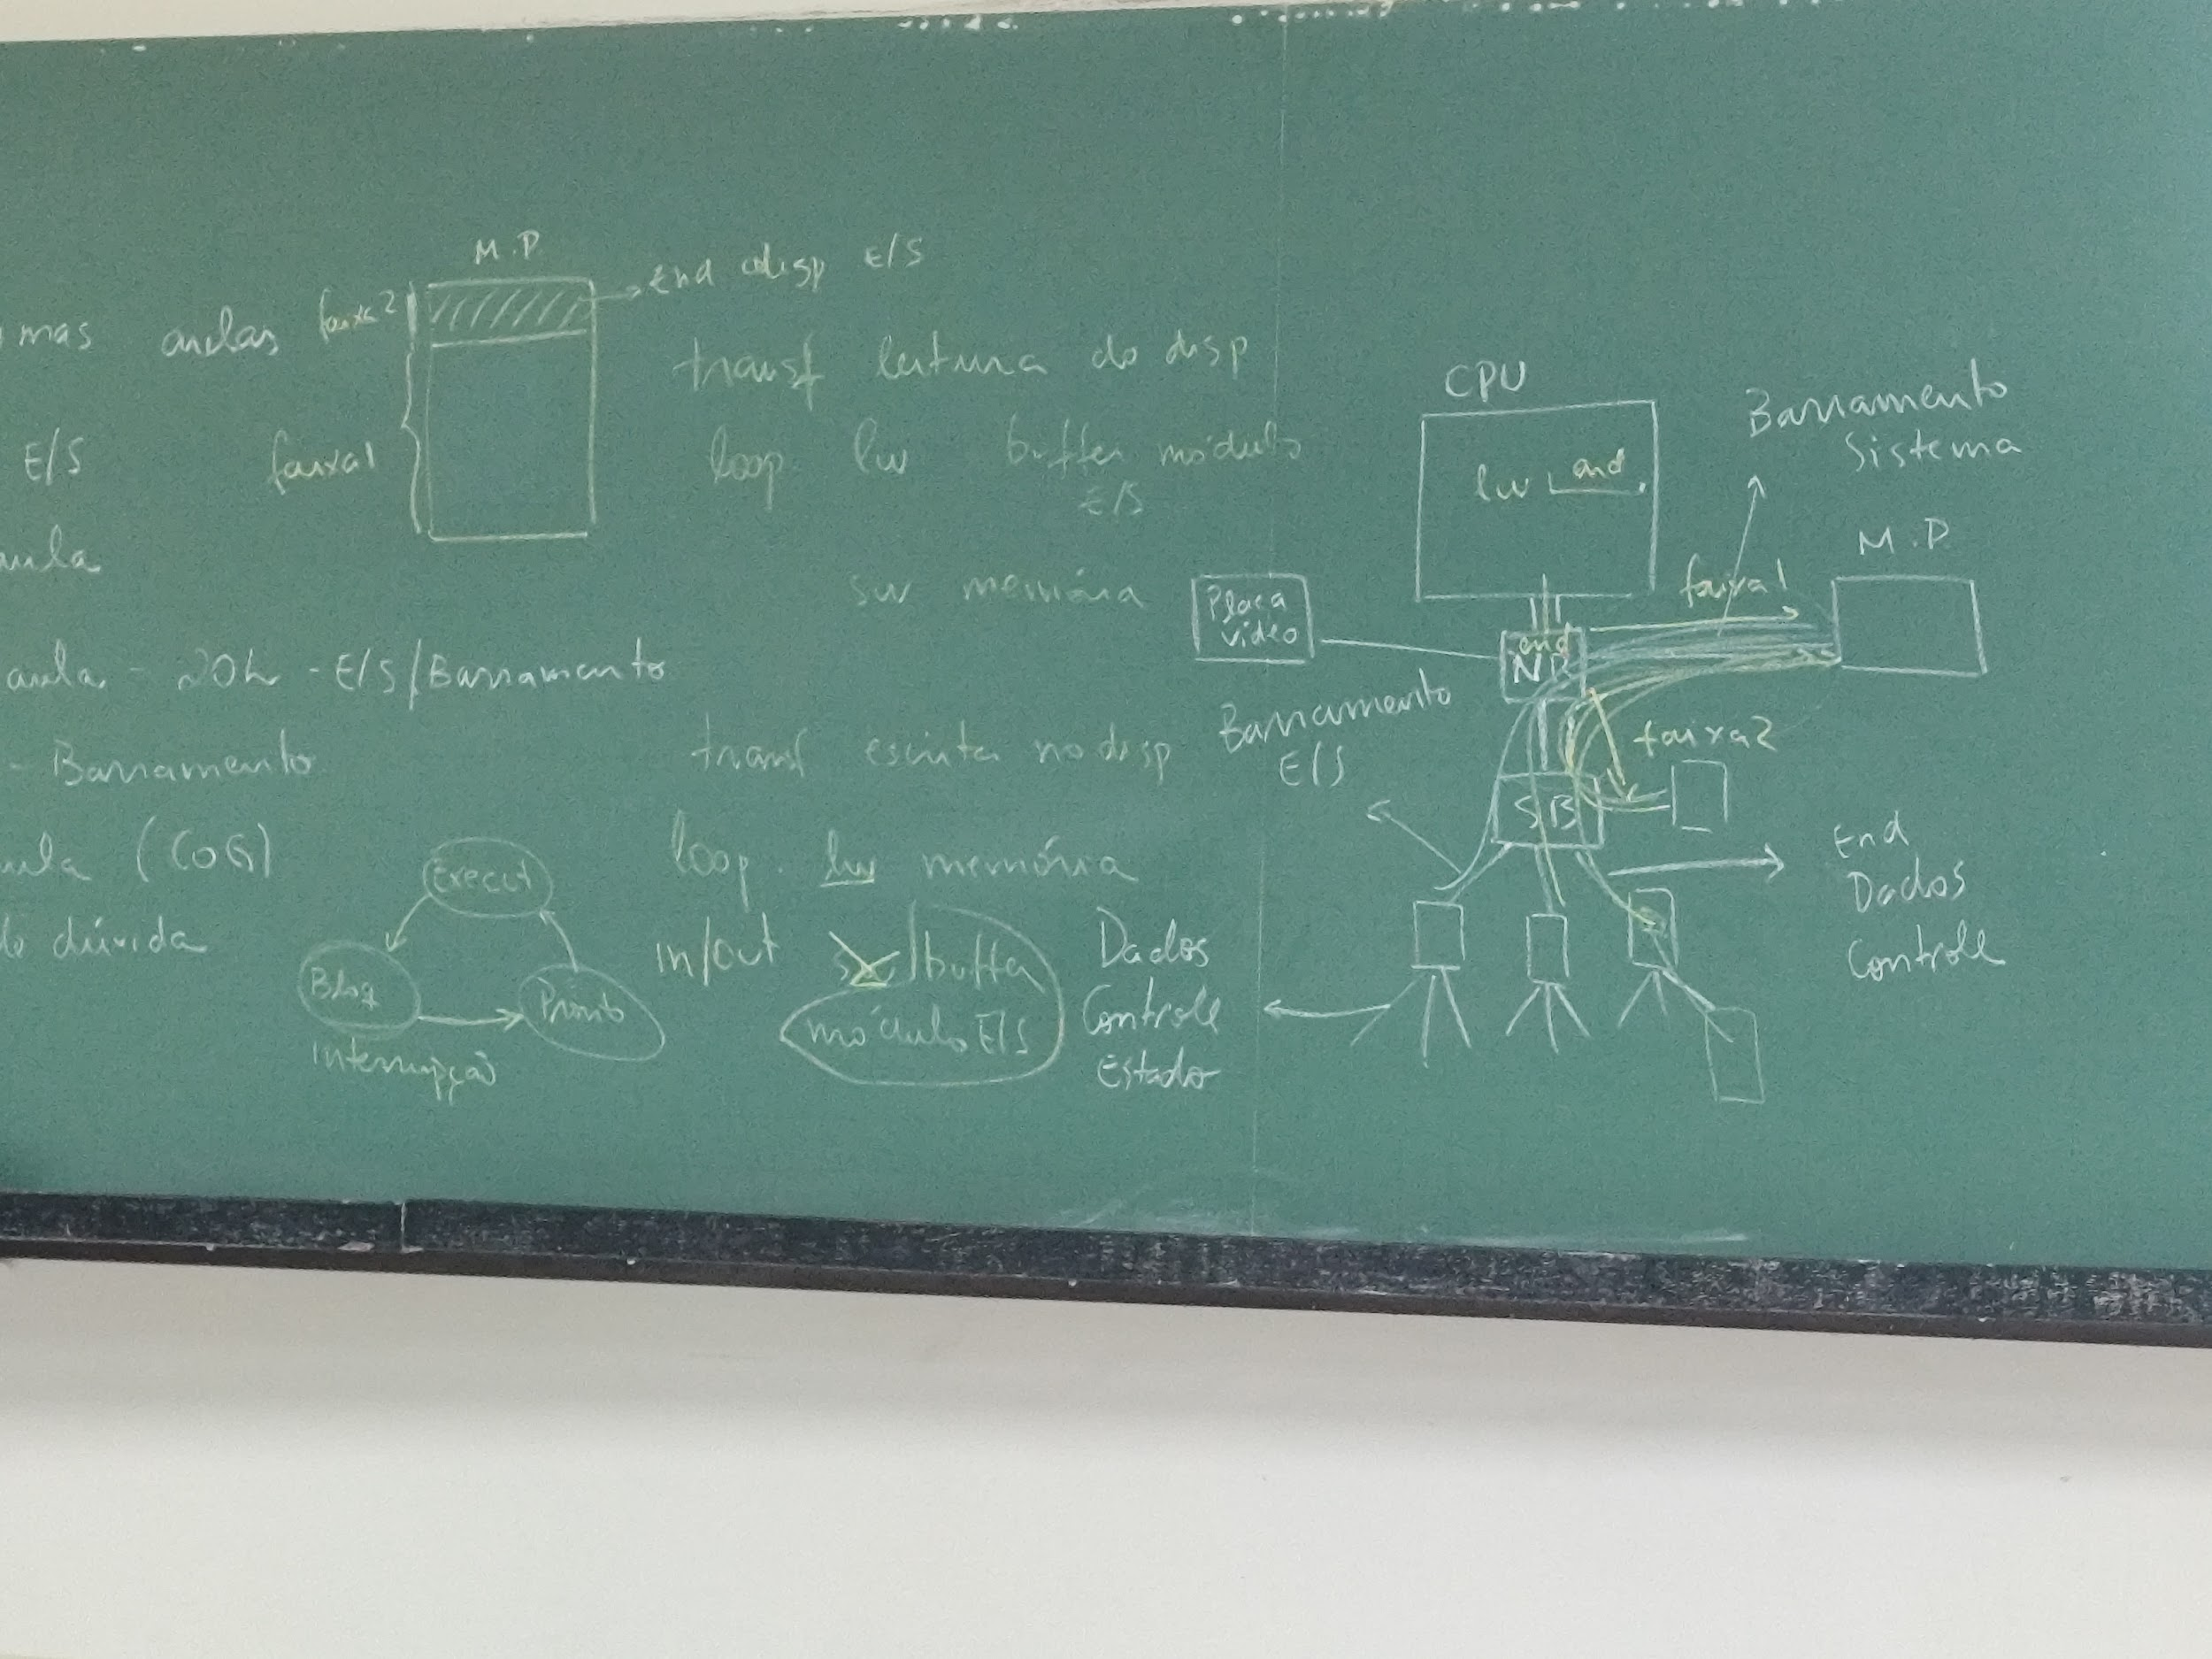 mas aulas
E/S
aula
aula - 20h - E/S/Barramento
- Barramento
aula (COG)
de dúvida
M.P.
faixa2
faixa1
End disp E/S
transf leitura do disp
loop lw buffer módulo
E/S
sw memória
transf escrita no disp
loop lw memória
in/out sw buffer
módulo E/S
Execut
Bloq
Pronto
Interrupção
Dados
Controle
Estado
CPU
lw end
Barramento
Sistema
M.P.
faixa1
Placa
vídeo
end
NB
Barramento
E/S
faixa2
SB
End
Dados
Controle